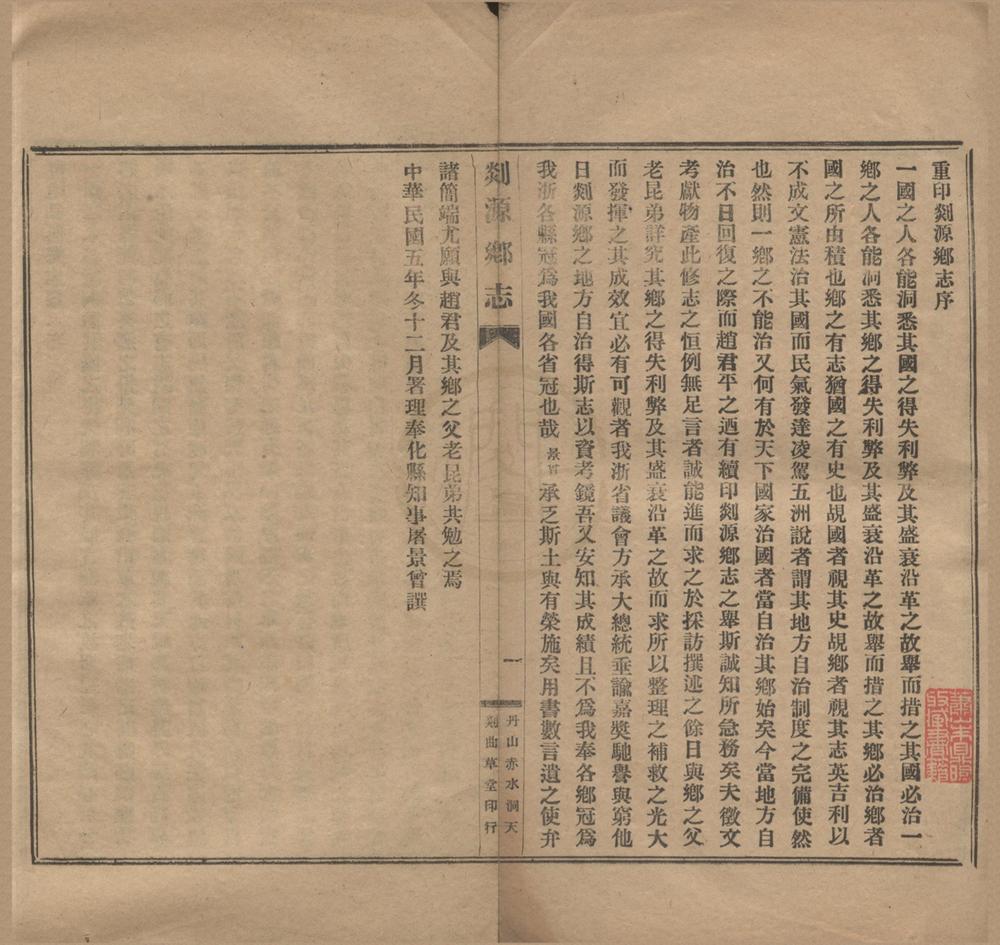 重印剡源鄉志序
一國之人各能洞悉其國之得失利弊及其盛衰沿革之故舉而措之其國必治一
鄉之人各能洞悉其鄉之得失利弊及其盛衰沿革之故舉而措之其鄉必治鄉者
國之所由積也鄉之有志猶國之有史也覘國者視其史覘鄉者視其志英吉利以
不成文憲法治其國而民氣發達凌駕五洲說者謂其地方自治制度之完備使然
也然則一鄉之不能治又何有於天下國家治國者當自治其鄉始矣今當地方自
治不日回復之際而趙君平之迺有續印剡源鄉志之舉斯誠知所急務矣夫徵文
考獻物產此修志之恒例無足言者誠能進而求之於採訪撰述之餘日與鄉之父
老昆弟詳究其鄉之得失利弊及其盛衰沿革之故而求所以整理之補救之光大
而發揮之其成效宜必有可觀者我浙省議會方承大總統垂諭嘉獎馳譽與窮他
日剡源鄉之地方自治得斯志以資考鏡吾又安知其成績且不爲我奉各鄉冠爲
我浙各縣冠爲我國各省冠也哉景曾承乏斯土與有榮施矣用書數言遺之使弁
剡源鄉志
一
丹山赤水洞天
剡曲草堂印行
諸簡端尤願與趙君及其鄉之父老昆弟共勉之焉
中華民國五年冬十二月署理奉化縣知事屠景曾譔